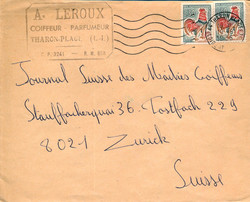 A. LEROUX
COIFFEUR - PARFUMEUR
THARON-PLAGE (L.A.)
Journal Suisse des Maîtres Coiffeurs
Stauffacherquai 36. Postfach 229
8021 Zurick
Suisse